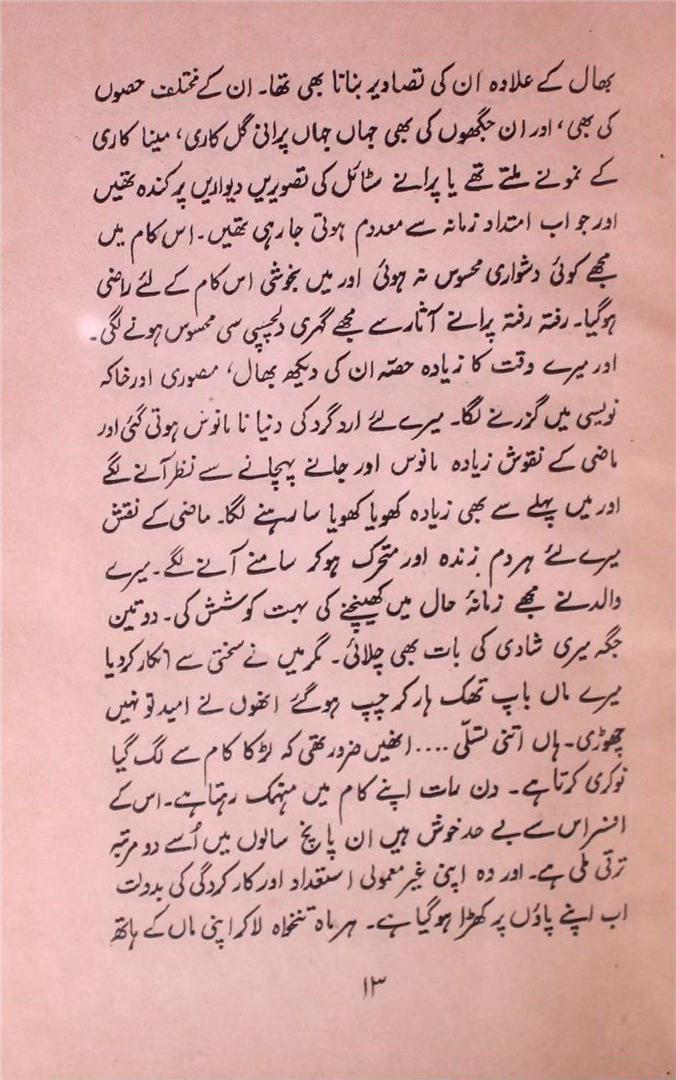 بھال کے علادہ ان کی تصادیر بنانا بھی تھا۔ ان کے مختلف حصوں
کی بھی، اور ان جگھوں کی بھی جہاں جہاں پرانی گل کاری، مینا کاری
کے نمونے ملتے تھے یا پرانے سٹائل کی تصویریں دیواریں پر کندہ تھیں
اور جو اب امتداد زمانہ سے معددم ہوتی جا رہی تھیں۔ اس کام میں
مجھے کوئی دشواری محسوس نہ ہوئی اور میں بخوشی اس کام کے لئے راضی
ہوگیا۔ رفتہ رفتہ پرانے آثار سے مجھے گہری دلچسپی سی محسوس ہونے لگی۔
اور میرے وقت کا زیادہ حصّہ ان کی دیکھ بھال، مصوری اور خاکہ
نویسی میں گزرنے لگا۔ میرے لئے اردگرد کی دنیا نا مانوس ہوتی گئی اور
ماضی کے نقوش زیادہ مانوس اور جانے پہچانے سے نظر آنے لگے
اور میں پہلے سے بھی زیادہ کھویا کھویا سا رہنے لگا۔ ماضی کے نقش
میرے لئے ہر دم زندہ اور متحرک ہوکر سامنے آنے لگے۔ میرے
والد نے مجھے زمانۂ حال میں کھینچنے کی بہت کوشش کی۔ دو تین
جگہ میری شادی کی بات بھی چلائی۔ مگر میں نے سختی سے انکار کردیا
میرے ماں باپ تھک ہار کر چپ ہوگئے انھوں نے امید تو نہیں
چھوڑی۔ ہاں اتنی تسلّی .... انھیں ضرور تھی کہ لڑکا کام سے لگ گیا
نوکری کرتا ہے۔ دن رات اپنے کام میں منہمک رہتا ہے۔ اس کے
افسر اس سے بے حد خوش ہیں ان پانچ سالوں میں اُسے دو مرتبہ
ترقی ملی ہے۔ اور وہ اپنی غیر معمولی استعداد اور کارکردگی کی بدولت
اب اپنے پاؤں پر کھڑا ہوگیا ہے۔ ہر ماہ تنخواہ لاکر اپنی ماں کے ہاتھ
۱۳